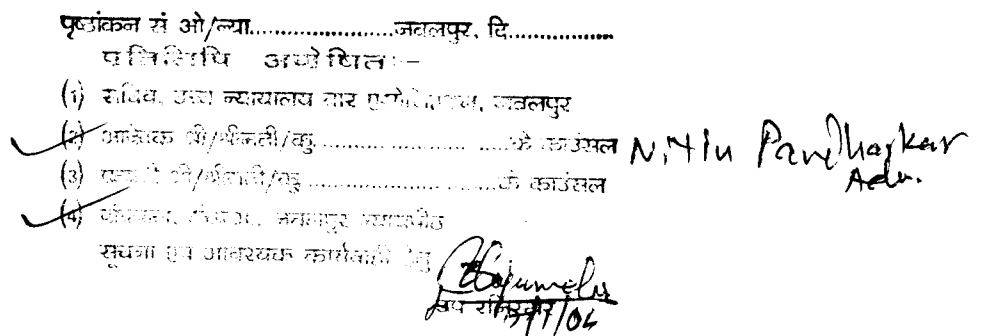 पृष्ठांकन सं ओ/ल्या......................जबलपुर, दि.................
प्रतिलिपि अग्रेषितः-
(1) सचिव, उच्च न्यायालय बार एसोसिएशन, जबलपुर
(2) आवेदक श्री/श्रीमती/कु..........................के काउंसल Nitin Pandhagkar Adv.
(3) श्री/श्रीमती/कु..............................के काउंसल
(4) जबलपुर न्यायपीठ
सूचना एवं आवश्यक कार्यवाही हेतु
उप रजिस्ट्रार